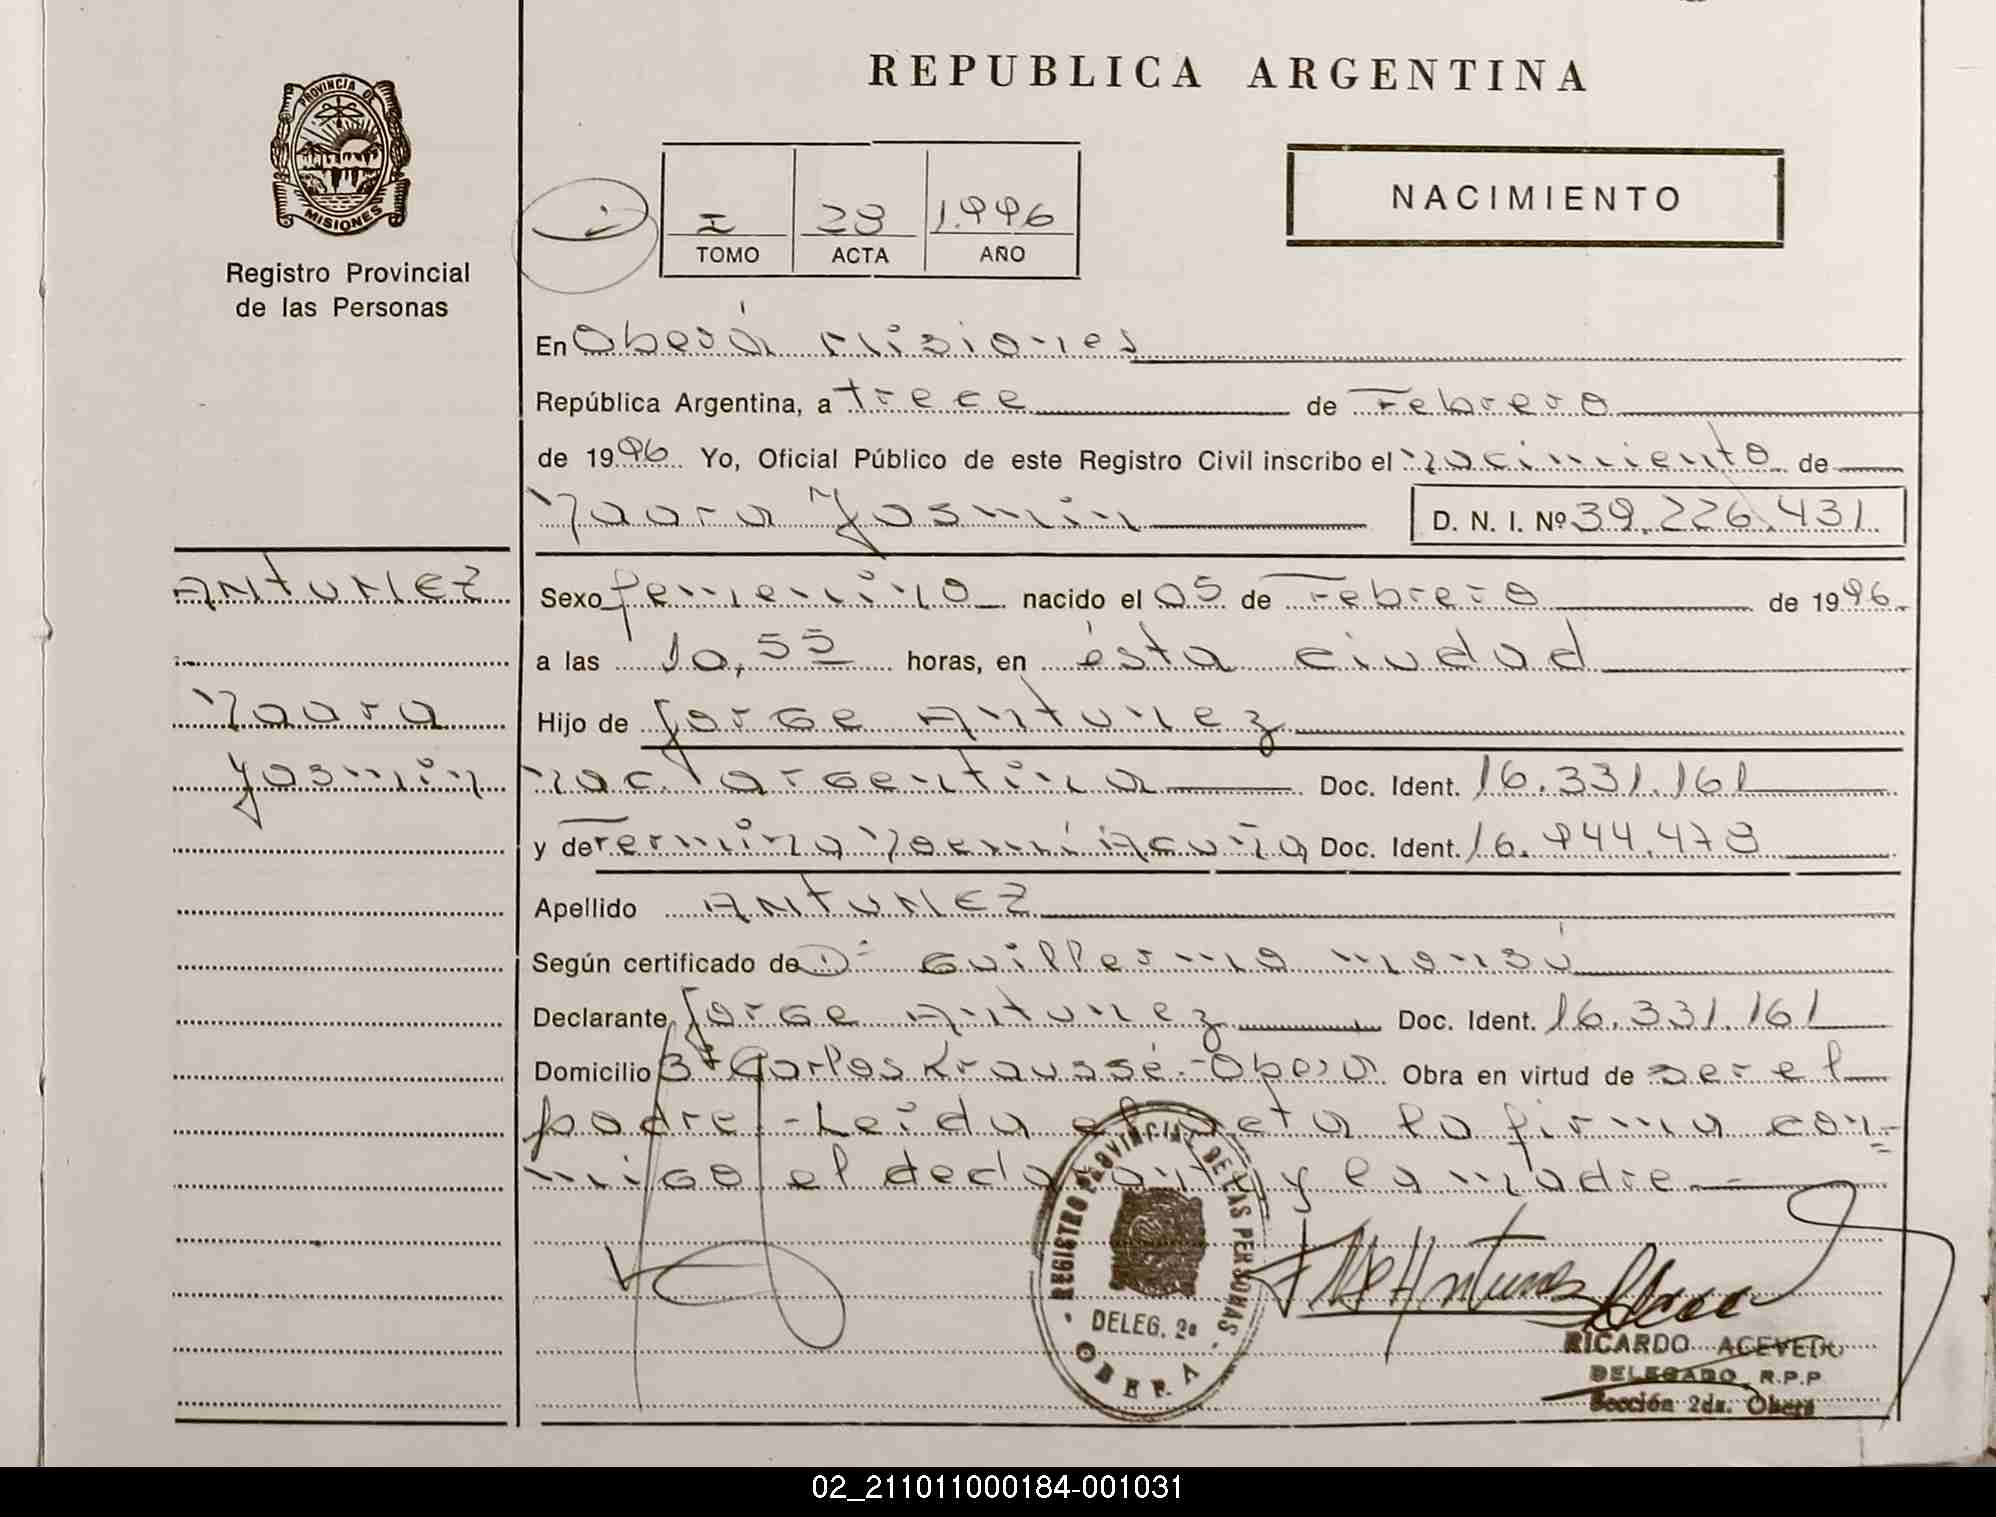 REPUBLICA ARGENTINA
PROVINCIA DE
MISIONES
Registro Provincial
de las Personas
I 28 1.996
TOMO ACTA AÑO
NACIMIENTO
En Oberá Misiones
República Argentina, a trece de Febrero
de 1996 Yo, Oficial Público de este Registro Civil inscribo el nacimiento de
Naara Yasmin D. N. I. Nº 39.226.431
ANTUNEZ
Naara
Yasmin
Sexo femenino nacido el 05 de Febrero de 1996
a las 10,55 horas, en ésta ciudad
Hijo de Jorge Antunez
nac. argentina Doc. Ident. 16.331.161
y de Fermina Noemí Acuña Doc. Ident. 16.944.478
Apellido ANTUNEZ
Según certificado de Dr Guillermo
Declarante Jorge Antunez Doc. Ident. 16.331.161
Domicilio Bº Carlos Kraussé - Oberá Obra en virtud de ser el
padre - Leida el acta la firma con-
migo el declarante y la madre
REGISTRO PROVINCIAL DE LAS PERSONAS
DELEG. 2ª
OBERA
RICARDO ACEVEDO
DELEGADO R.P.P
Sección 2da. Oberá
02_211011000184-001031